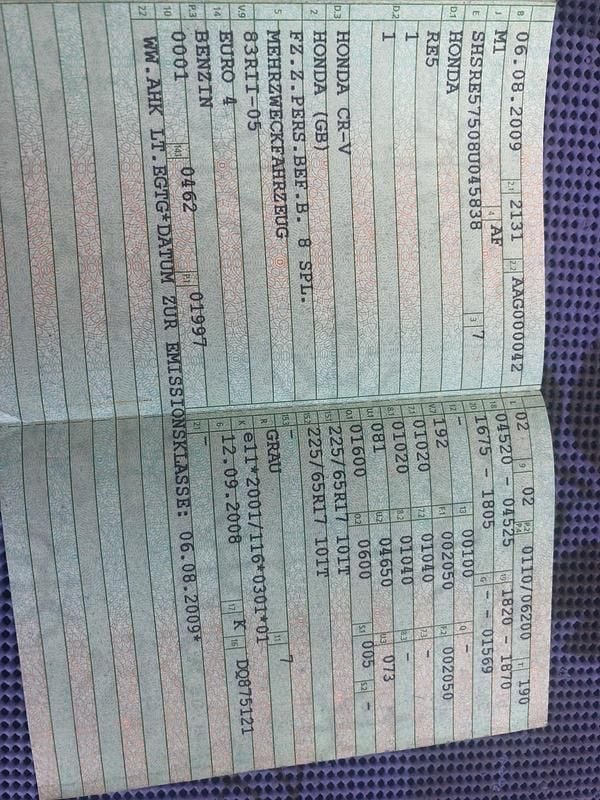 B 06.08.2009 2.1 2131 2.2 AAG000042
J M1 4 AF
E SHSRE57508U045838 3 7
D.1 HONDA
RE5
D.2 1
1
D.3 HONDA CR-V
2 HONDA (GB)
5 FZ.Z.PERS.BEF.B. 8 SPL.
MEHRZWECKFAHRZEUG
V.9 83RII-05
14 EURO 4
P.3 BENZIN
10 0001 14.1 0462 P.1 01997
22 WW.AHK LT.EGTG*DATUM ZUR EMISSIONSKLASSE: 06.08.2009*
L 02 9 02 P.2 P.4 0110/06200 T 190
18 04520 - 04525 19 1820 - 1870
20 1675 - 1805 G - - 01569
12 - 13 00100 Q -
V.7 192 F.1 002050 F.2 002050
7.1 01020 7.2 01040 7.3 -
8.1 01020 8.2 01040 8.3 -
U.1 081 U.2 04650 U.3 073
O.1 01600 O.2 0600 S.1 005 S.2 -
15.1 225/65R17 101T
15.2 225/65R17 101T
15.3 -
R GRAU 11 7
K e11*2001/116*0301*01
6 12.09.2008 17 K 16 DQ875121
21 -